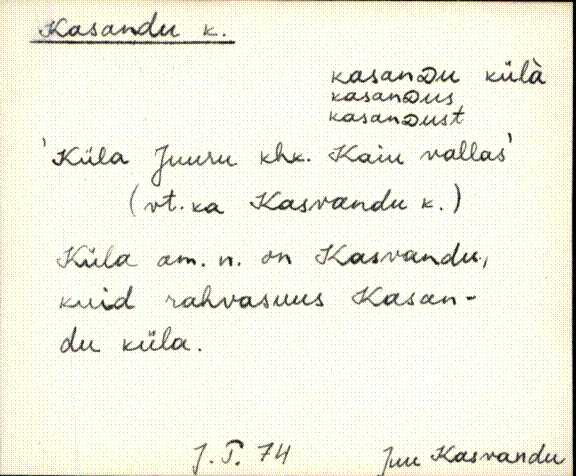 Kasandu k.
kasanDu külà
kasanDus
kasanDust
'Küla Juuru khk. Kaiu vallas'
(vt. ka Kasvandu k.)
Küla am. n. on Kasvandu,
kuid rahvasuus Kasan-
du küla.
J. T. 74 Juu Kasvandu